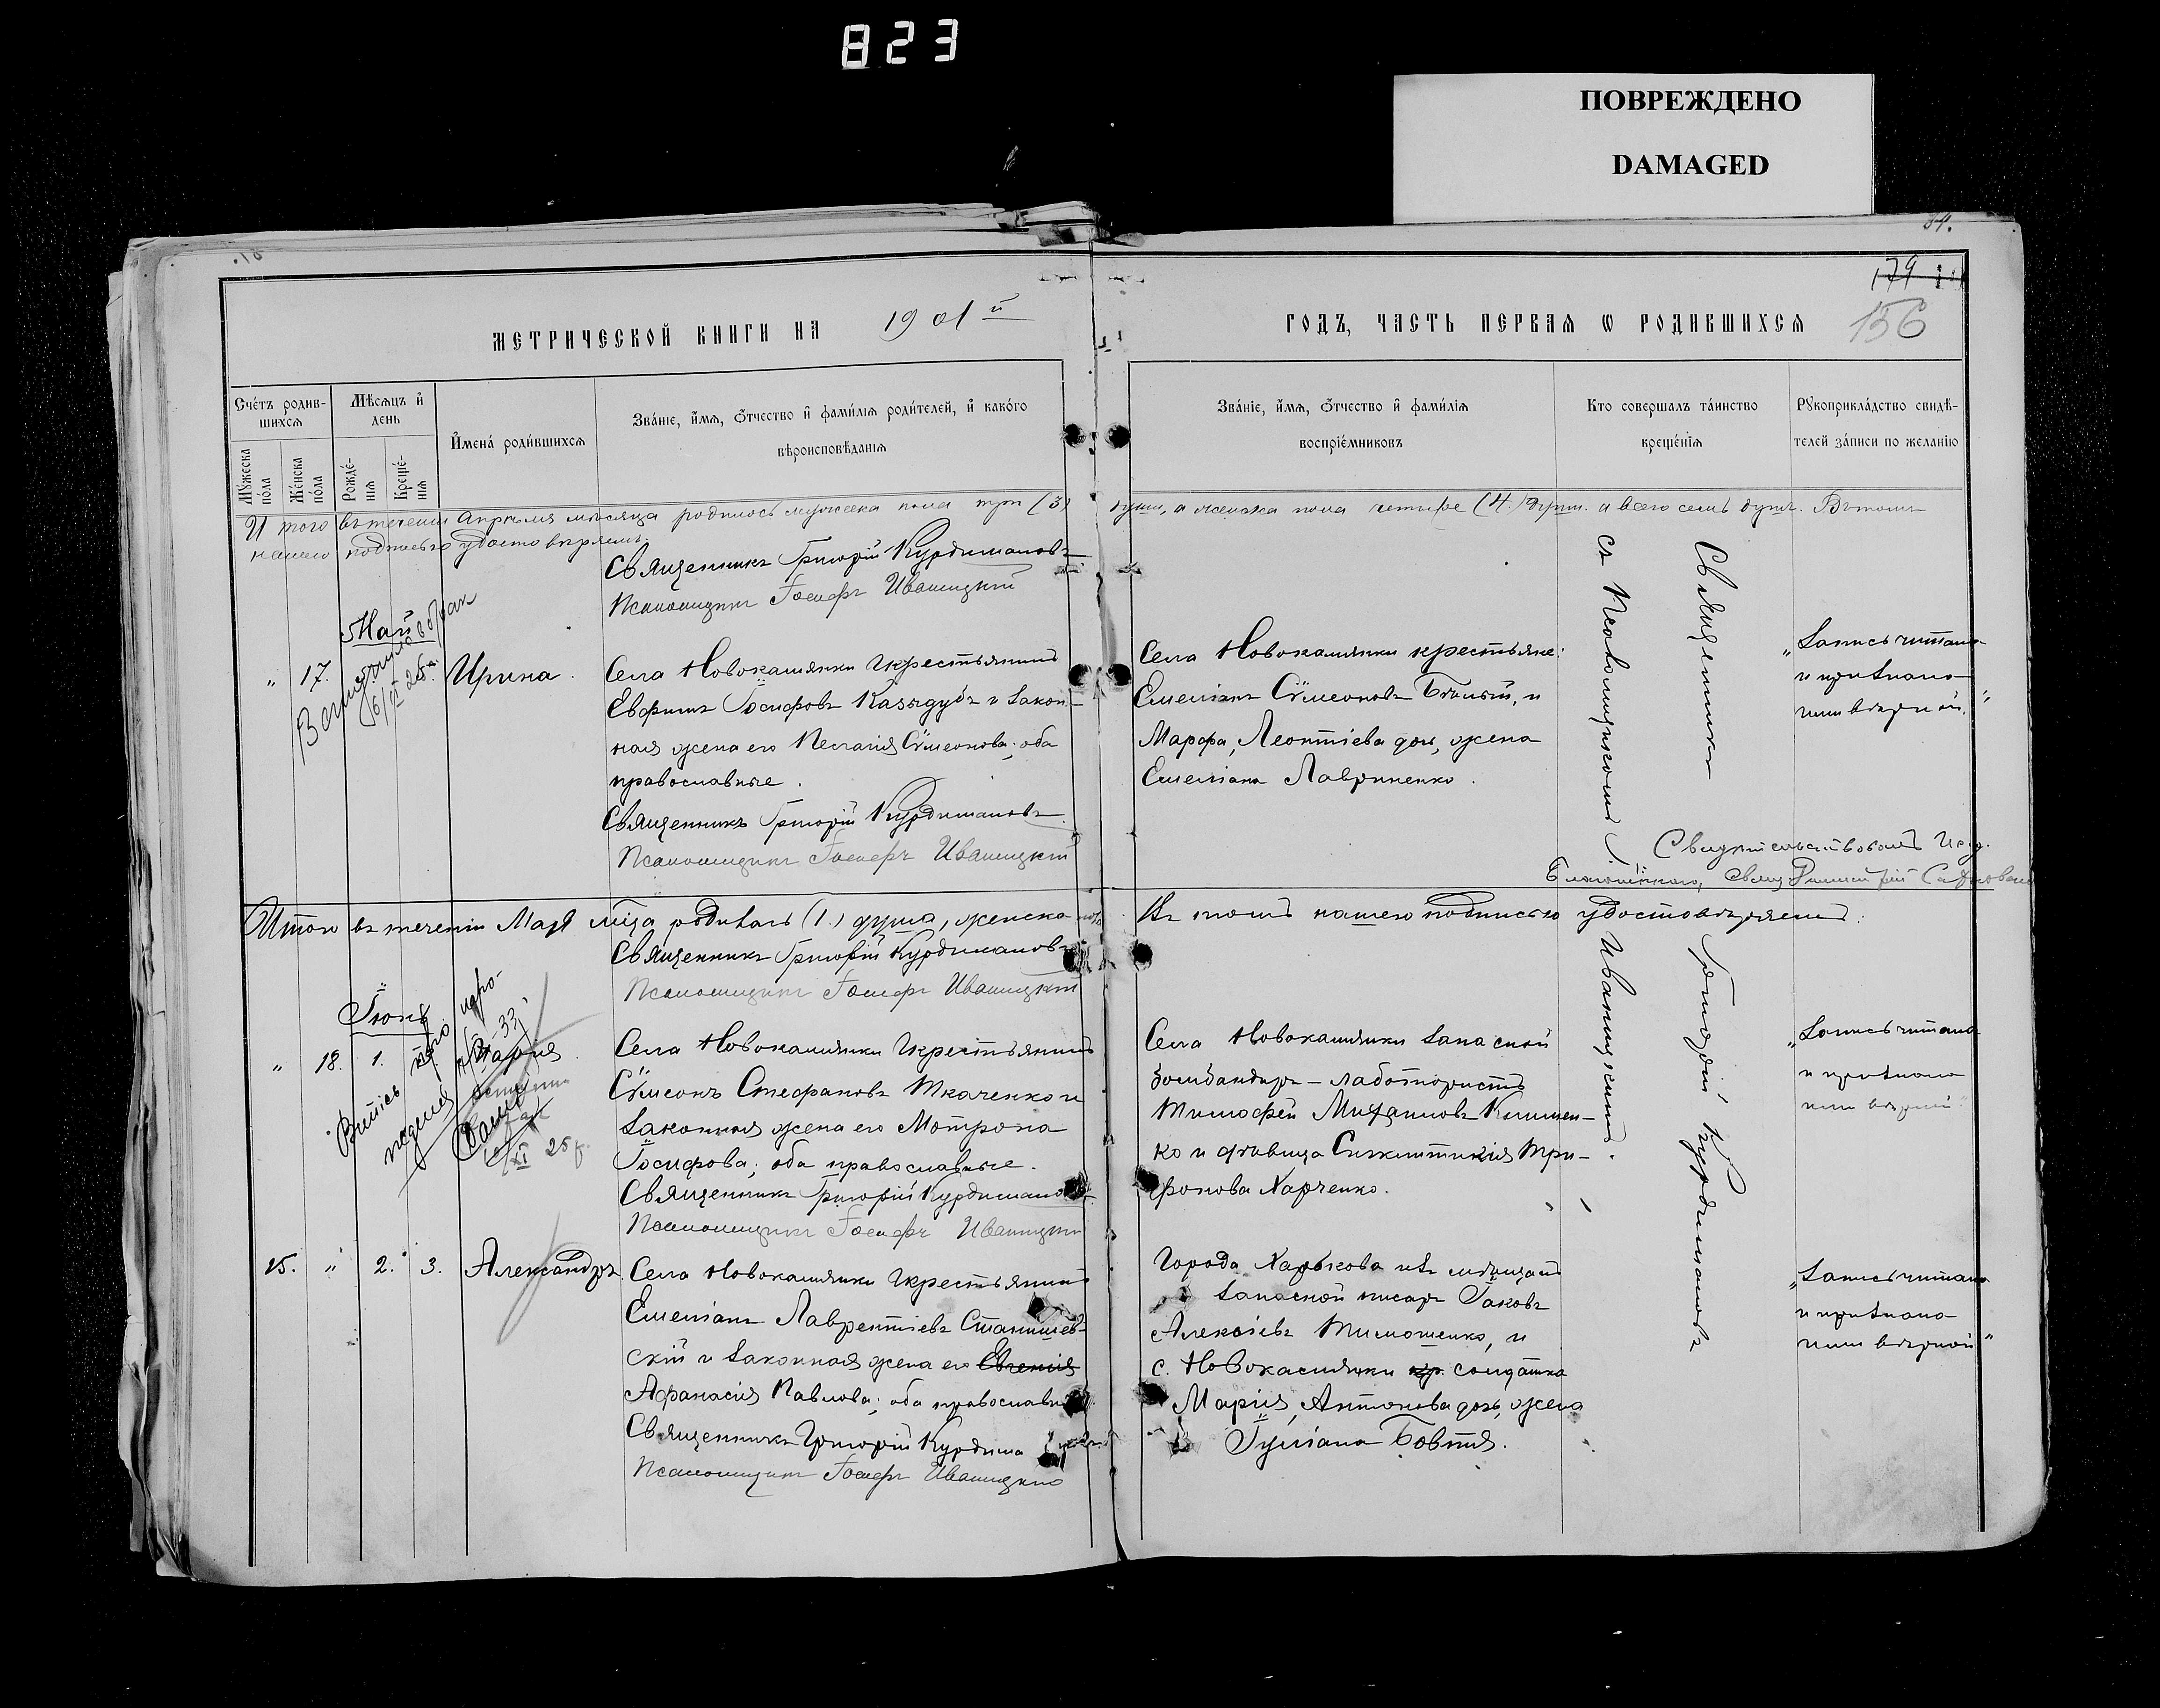 823
ПОВРЕЖДЕНО
DAMAGED
156
МЕТРИЧЕСКОЙ КНИГИ НА 1901й
ГОДЪ, ЧАСТЬ ПЕРВАЯ Ѡ РОДИВШИХСЯ
Счéтъ родив-
шихся
Мужеска пола
Женска пола
Мѣсяцъ и
день
Рожде-
нія
Креще-
нія
Имена родившихся
Званіе, имя, отчество и фамилія родителей, и какого
вѣроисповѣданія
Званіе, имя, отчество и фамилія
воспріемниковъ
Кто совершалъ таинство
крещенія
Рукоприкладство свидѣ-
телей записи по желанію
Итого въ теченіи Апрѣля мѣсяца родилось мужеска пола три (3) души, а женска пола четыре (4) души. а всего семь душъ. Въ томъ
нашею подписью удостовѣряемъ:
Священникъ Григорій Курдимановъ
Псаломщикъ Іосифъ Иваницкій
Май
" 17. 25. Ирина.
Села Новокамянки крестьянинъ
Евфимъ Іосифовъ и закон-
ная жена его Пелагія Сѵмеонова; оба
православные.
Священникъ Григорій Курдимановъ
Псаломщикъ Іосифъ Иваницкій
Села Новокамянки крестьяне:
Емеліанъ Сѵмеоновъ Бѣлый, и
Марфа, Леонтіева дочь, жена
Емеліана Лавриненко.
Священникъ Григорій Курдимановъ
съ Псаломщикомъ І. Иваницкимъ.
„Запись читана
и признана
ими вѣрной."
Итого въ теченіи Мая мѣсяца родилась (1.) душа, женска пола. Въ томъ нашею подписью удостовѣряемъ:
Священникъ Григорій Курдимановъ
Псаломщикъ Іосифъ Иваницкій
Іюнь
" 18. 1. Марія
Села Новокамянки крестьянинъ
Сѵмеонъ Стефановъ Ткаченко и
законная жена его Мотрона
Іосифова; оба православные.
Священникъ Григорій Курдимановъ
Псаломщикъ Іосифъ Иваницкій
Села Новокамянки запасной
Тимофей Михаиловъ Климен-
ко и дѣвица Синклитикія Три-
фонова Харченко.
„Запись читана
и признана
ими вѣрной"
15. " 2. 3. Александръ.
Села Новокамянки крестьянинъ
Емеліанъ Лаврентіевъ Станишев-
скій и законная жена его Евгенія
Афанасія Павлова; оба православные.
Священникъ Григорій Курдимановъ
Псаломщикъ Іосифъ Иваницкій
Города Харькова изъ мѣщанъ
запасной писарь Іаковъ
Алексіевъ Тимошенко, и
с. Новокамянки кр. солдатка
Марія, Антонова дочь, жена
Іуліана Бовтя.
„Запись читана
и признана
ими вѣрной"